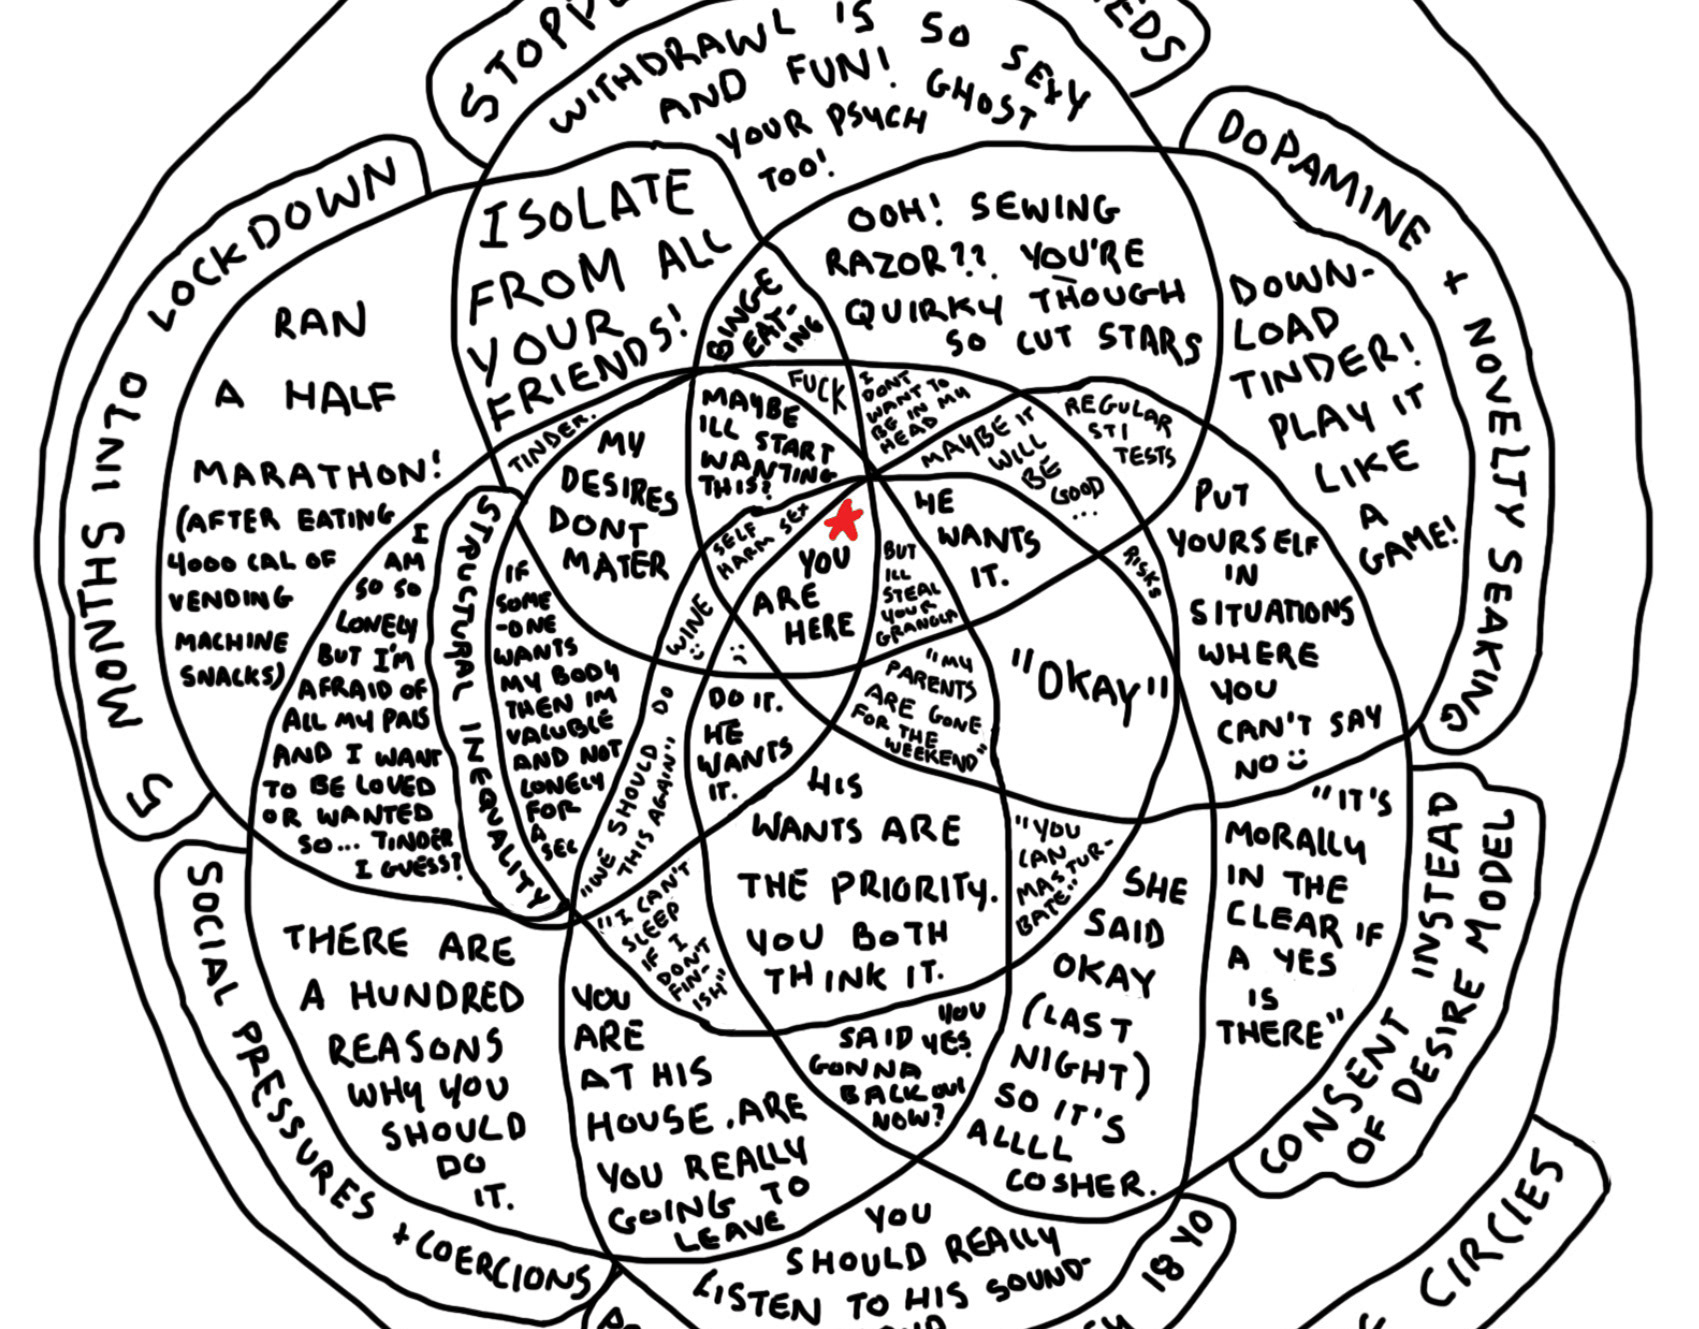 STOPP
EDS
WITHDRAWL IS SO SEXY
AND FUN! GHOST
YOUR PSYCH
TOO!
5 MONTHS INTO LOCKDOWN
DOPAMINE + NOVELTY SEAKING
ISOLATE
FROM ALL
YOUR
FRIENDS!
BINGE
EAT-
ING
OOH! SEWING
RAZOR?? YOU'RE
QUIRKY THOUGH
SO CUT STARS
DOWN-
LOAD
TINDER!
PLAY IT
LIKE
A
GAME!
RAN
A HALF
MARATHON!
(AFTER EATING
4000 CAL OF
VENDING
MACHINE
SNACKS)
TINDER.
MY
DESIRES
DONT
MATER
MAYBE
ILL START
WANTING
THIS?
FUCK
I
DONT
WANT TO
BE IN MY
HEAD
MAYBE IT
WILL
BE
GOOD
...
REGULAR
STI
TESTS
RISKS
PUT
YOURSELF
IN
SITUATIONS
WHERE
YOU
CAN'T SAY
NO :)
I
AM
SO SO
LONELY
BUT I'M
AFRAID OF
ALL MY PALS
AND I WANT
TO BE LOVED
OR WANTED
SO... TINDER
I GUESS?
STRUCTURAL INEQUALITY
IF
SOME
-ONE
WANTS
MY BODY
THEN IM
VALUBLE
AND NOT
LONELY
FOR
A
SEC
SELF
HARM SEX
WINE
:)
:(
YOU
ARE
HERE
BUT
ILL
STEAL
YOUR
GRANOLA
HE
WANTS
IT.
"OKAY"
"MY
PARENTS
ARE GONE
FOR THE
WEEKEND"
"WE SHOULD DO
THIS AGAIN"
DO IT.
HE
WANTS
IT.
HIS
WANTS ARE
THE PRIORITY.
YOU BOTH
THINK IT.
"YOU
CAN
MASTUR-
BATE"
"I CAN'T
SLEEP
IF I
DON'T
FIN-
ISH"
SHE
SAID
OKAY
(LAST
NIGHT)
SO IT'S
ALLLL
COSHER.
"IT'S
MORALLY
IN THE
CLEAR IF
A YES
IS
THERE"
CONSENT INSTEAD
OF DESIRE MODEL
SOCIAL PRESSURES + COERCIONS
THERE ARE
A HUNDRED
REASONS
WHY YOU
SHOULD
DO
IT.
YOU
ARE
AT HIS
HOUSE. ARE
YOU REALLY
GOING TO
LEAVE
YOU
SAID YES.
GONNA
BACK OUT
NOW?
YOU
SHOULD REALLY
LISTEN TO HIS SOUND-
18 YO
CIRCLES